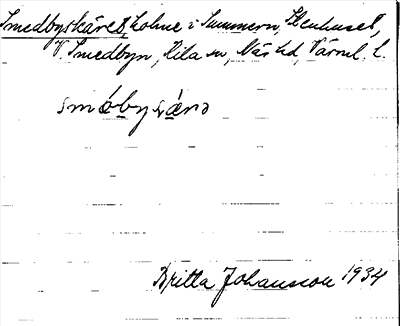 Smedbyskäret, holme i Summern, Stenhuset,
V. Smedbyn, Kila sn, Näs hd, Värml. l.
smǿbyʂæ̀rə
Britta Johansson 1934